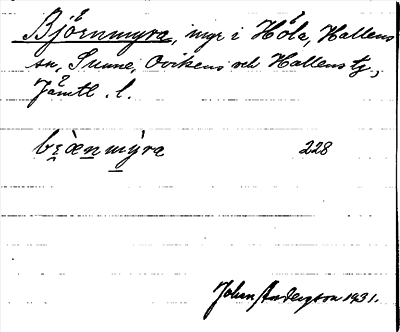 Björnmyra, myr i Höla, Hallens
sn, Sunne, Ovikens och Hallens tg.,
Jämtl. l.
228
John Anderson 1931.